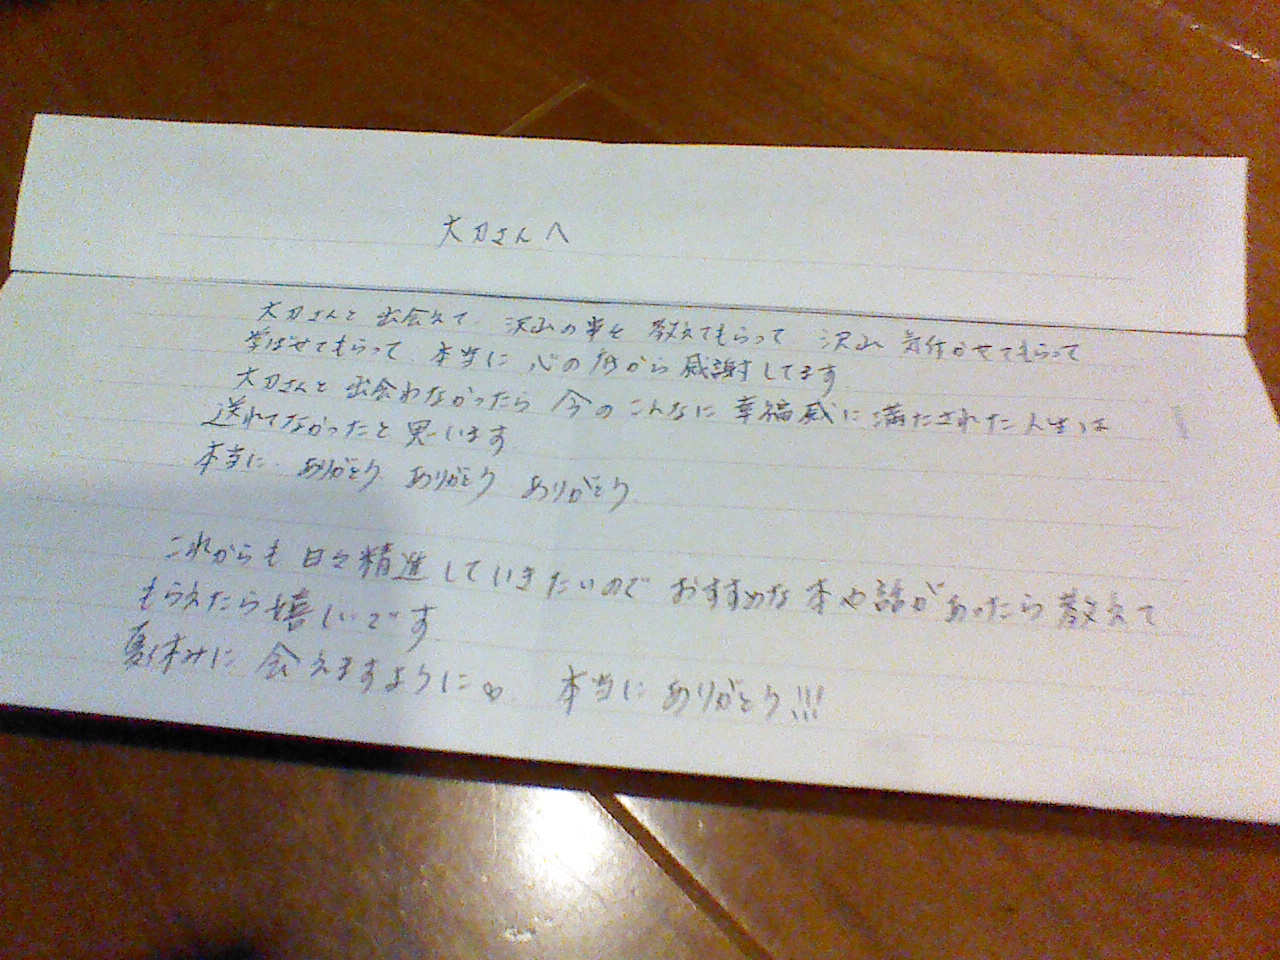 大刀さんへ
大刀さんと 出会えて 沢山の事を 教えてもらって 沢山 気付かせてもらって
学ばせてもらって 本当に 心の底から 感謝してます
大刀さんと 出会わなかったら 今の こんなに 幸福感に 満たされた 人生は
送れてなかったと 思います
本当に ありがとう ありがとう ありがとう
これからも 日々 精進 していきたいので おすすめな 本や 話が あったら 教えて
もらえたら 嬉しいです
夏休みに 会えますように 本当に ありがとう!!!